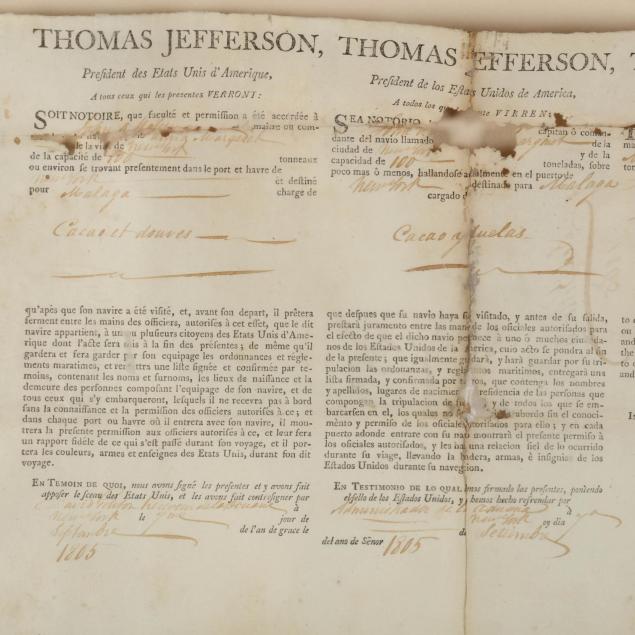 THOMAS JEFFERSON,
President des Etats Unis d'Amerique,
A tous ceux qui les presentes VERRONT:
SOIT NOTOIRE, que faculté et permission a été accordée à
maitre ou com-
de la ville de New York Margaret
de la capacité de 100 tonneaux
ou environ se trovant presentement dans le port et havre de
New York et destiné
pour Malaga chargé de
Cacao et douves
qu'après que son navire a été visité, et, avant son depart, il prêtera
serment entre les mains des officiers, autorisés à cet effet, que le dit
navire appartient, à un ou plusieurs citoyens des Etats Unis d'Ame-
rique dont l'acte sera mis à la fin des présentes; de même qu'il
gardera et fera garder par son equipage les ordonnances et règle-
ments maratimes, et remettra une liste signée et confirmée par te-
moins, contenant les noms et surnoms, les lieux de naissance et la
demeure des personnes composant l'equipage de son navire, et de
tous ceux qui s'y embarqueront, lesquels il ne recevra pas à bord
sans la connaissance et la permission des officiers autorisés à ce; et
dans chaque port ou havre où il entrera avec son navire, il mon-
trera la presente permission aux officiers autorisés à ce, et leur fera
un rapport fidéle de ce qui s'est passé durant son voyage, et il por-
tera les couleurs, armes et enseignes des Etats Unis, durant son dit
voyage.
EN TEMOIN DE QUOI, nous avons signé les presentes et y avons fait
apposer le sceau des Etats Unis, et les avons fait contresigner par
à
New York le jour de
Septembre de l'an de grace le
1805
THOMAS JEFFERSON,
President de los Estados Unidos de America,
A todos los que VIEREN:
SEA NOTORIO,
capitan ó coman-
dante del navio llamado de la
ciudad de y de la
capacidad de 100 toneladas, sobre
poco mas ò menos, hallandose actualmente en el puerto de
New York destinado para Malaga
cargado
Cacao y duelas
que despues que su navio haya sido visitado, y antes de su salida,
prestará juramento entre las manos de los oficiales autorisados para
el efecto de que el dicho navio pertenece à uno ò muchos ciudada-
nos de los Estados Unidos de la America, cuio acto se pondra al fin
de la presente; que igualmente guardará, y hará guardar por su tri-
pulacion las ordonanzas, y reglamentos maritimos, entregará una
lista firmada, y confirmada por testigos, que contenga los nombres
y apellidos, lugares de nacimiento y residencia de las personas que
compongan la tripulacion de su navio y de todos los que se em-
barcarsen en el, los quales no recibirá a bordo sin el conoci-
mento y permiso de los oficiales autorisados para ello; y en cada
puerto adonde entrare con su navio mostrará el presente permiso à
los oficiales autorisados, y les hará una relacion fiel de lo ocurrido
durante su viage, llevando la bandera, armas, è insignias de los
Estados Unidos durante su navegacion.
EN TESTIMONIO DE LO QUAL hemos firmado los presentes, poniendo
el sello de los Estados Unidos, y hemos hecho refrendar por
Administrador de la aduana à
New York oy dia
de Settembre
del ano de Sènor 1805